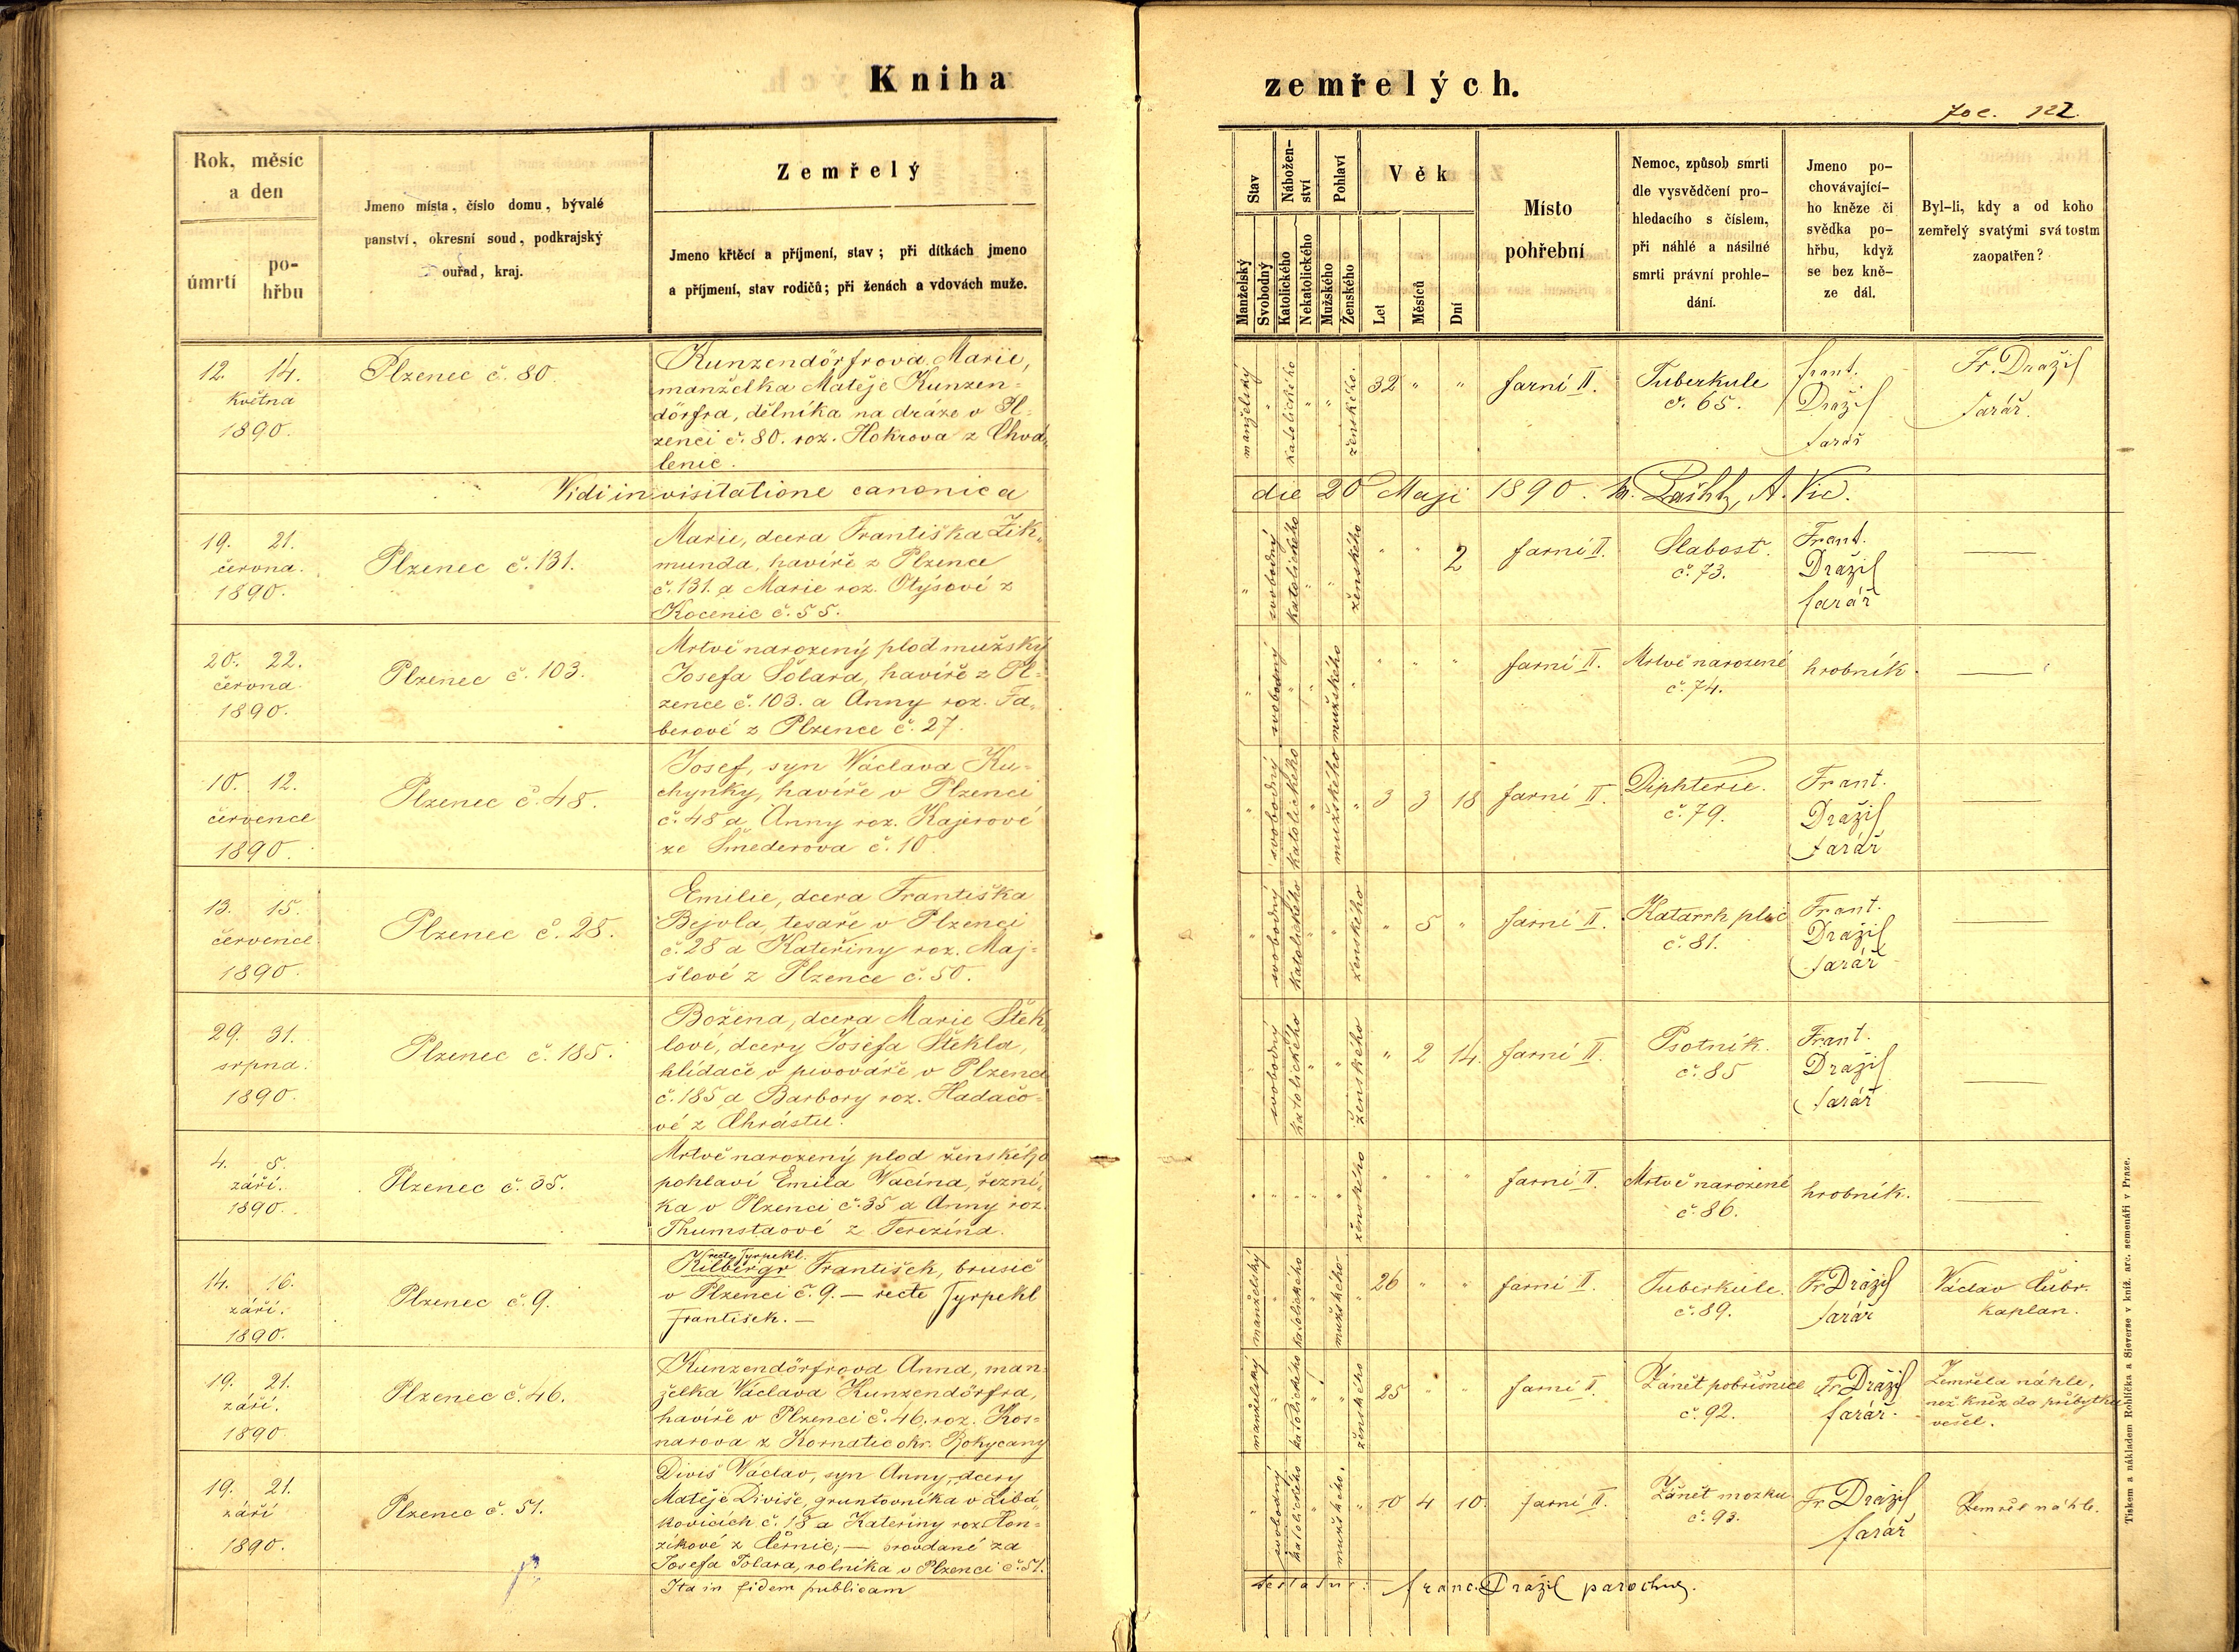 Kniha zemřelých.
Fol. 122.
Rok, měsíc
a den
úmrtí
po-
hřbu
Jmeno místa, číslo domu, bývalé
panství, okresní soud, podkrajský
ouřad, kraj.
Zemřelý
Jmeno křtěcí a příjmení, stav; při dítkách jmeno
a příjmení, stav rodičů; při ženách a vdovách muže.
Stav
Manželský
Svobodný
Nábožen-
ství
Katolického
Nekatolického
Pohlaví
Mužského
Ženského
Věk
Let
Měsíců
Dní
Místo
pohřební
Nemoc, způsob smrti
dle vysvědčení pro-
hledacího s číslem,
při náhlé a násilné
smrti právní prohle-
dání.
Jmeno po-
chovávající-
ho kněze či
svědka po-
hřbu, když
se bez kně-
ze dál.
Byl-li, kdy a od koho
zemřelý svatými svátostm
zaopatřen?
12. 14.
května
1890.
Plzenec č. 80.
Kunzendörfrova Marie,
manželka Matěje Kunzen-
dörfra, dělníka na dráze v Pl-
zenci č. 80. roz. Hokrova z Chvá-
lenic.
manželský " katolického " " ženského.
32 " "
farní II.
Tuberkule
č. 65.
Frant.
Dražil
farář
Fr. Dražil
farář.
Vidi in visitatione canonica
die 20 Maji 1890. A. Vic.
19. 21.
června.
1890.
Plzenec č. 131.
Marie, dcera Františka Zik-
munda, havíře z Plzence
č. 131. a Marie roz. Otýsové z
Kocenic č. 55.
" svobodný katolického " " ženského
" " 2
farní II.
Slabost.
č. 73.
Frant.
Dražil
farář
20. 22.
června.
1890.
Plzenec č. 103.
Mrtvě narozený plod mužský
Josefa Šolara, havíře z Pl-
zence č. 103. a Anny roz. Fa-
berové z Plzence č. 27.
" svobodný " " mužského "
" " "
farní II.
Mrtvě narozené
č. 74.
hrobník.
10. 12.
července
1890.
Plzenec č. 48.
Josef, syn Václava Ku-
chynky, havíře v Plzenci
č. 48 a Anny roz. Kajerové
ze Šmederova č. 10.
" svobodný katolického " mužského "
3 3 18
farní II.
Diphterie.
č. 79.
Frant.
Dražil
farář
13. 15.
července.
1890.
Plzenec č. 28.
Emilie, dcera Františka
Bejvla, tesaře v Plzenci
č. 28 a Kateřiny roz. Maj-
šlové z Plzence č. 50.
" svobodný katolického " " ženského
" 5 "
farní II.
Katarrh plic
č. 81.
Frant.
Dražil
farář
29. 31.
srpna.
1890.
Plzenec č. 185.
Božena, dcera Marie Štek-
lové, dcery Josefa Štekla,
hlídače v pivováře v Plzenci
č. 185 a Barbory roz. Hadačo-
vé z Chrástu.
" svobodný katolického " " ženského
" 2 14.
farní II.
Psotník.
č. 85
Frant.
Dražil
farář
4. 5.
září.
1890.
Plzenec č. 35.
Mrtvě narozený plod ženského
pohlaví Emila Vacína, řezní-
ka v Plzenci č. 35 a Anny roz.
Thumstaové z Terezína.
" " " " " ženského
" " "
farní II.
Mrtvě narozené
č. 86.
hrobník.
14. 16.
září.
1890.
Plzenec č. 9.
recte Tyrpekl.
Kilbergr František, brusič
v Plzenci č. 9. — recte Tyrpekl
František. —
manželský " katolického " mužského "
26 " "
farní II.
Tuberkule.
č. 89.
Fr. Dražil
farář
Václav Čubr.
kaplan.
19. 21.
září.
1890
Plzenec č. 46.
Kunzendörfrova Anna, man-
želka Václava Kunzendörfra,
havíře v Plzenci č. 46, roz. Kos-
narova z Kornatic okr. Rokycany
manželský " katolického " " ženského
25 " "
farní I.
Zánět pobřišnice
č. 92.
Fr. Dražil
farář.
Zemřela náhle,
než kněz do příbytku
vešel.
19. 21.
září
1890.
Plzenec č. 51.
Diviš Václav, syn Anny, dcery
Matěje Diviše, gruntovníka v Libá-
kovicích č. 18 a Kateřiny roz. Hon-
zíkové z Černic; — provdané za
Josefa Tolara, rolníka v Plzenci č. 51.
" svobodný katolického " mužského. "
10 4 10.
farní II.
Zánět mozku
č. 93.
Fr. Dražil
farář
Zemřel náhle.
Ita in fidem publicam
testatur: Franc. Dražil parochus.
Tiskem a nákladem Rohlíčka a Sieverse v kníž. arc. semenáři v Praze.